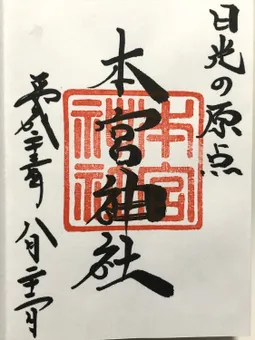 日光の原点
本宮神社
本宮神社
平成二十五年 八月二十一日